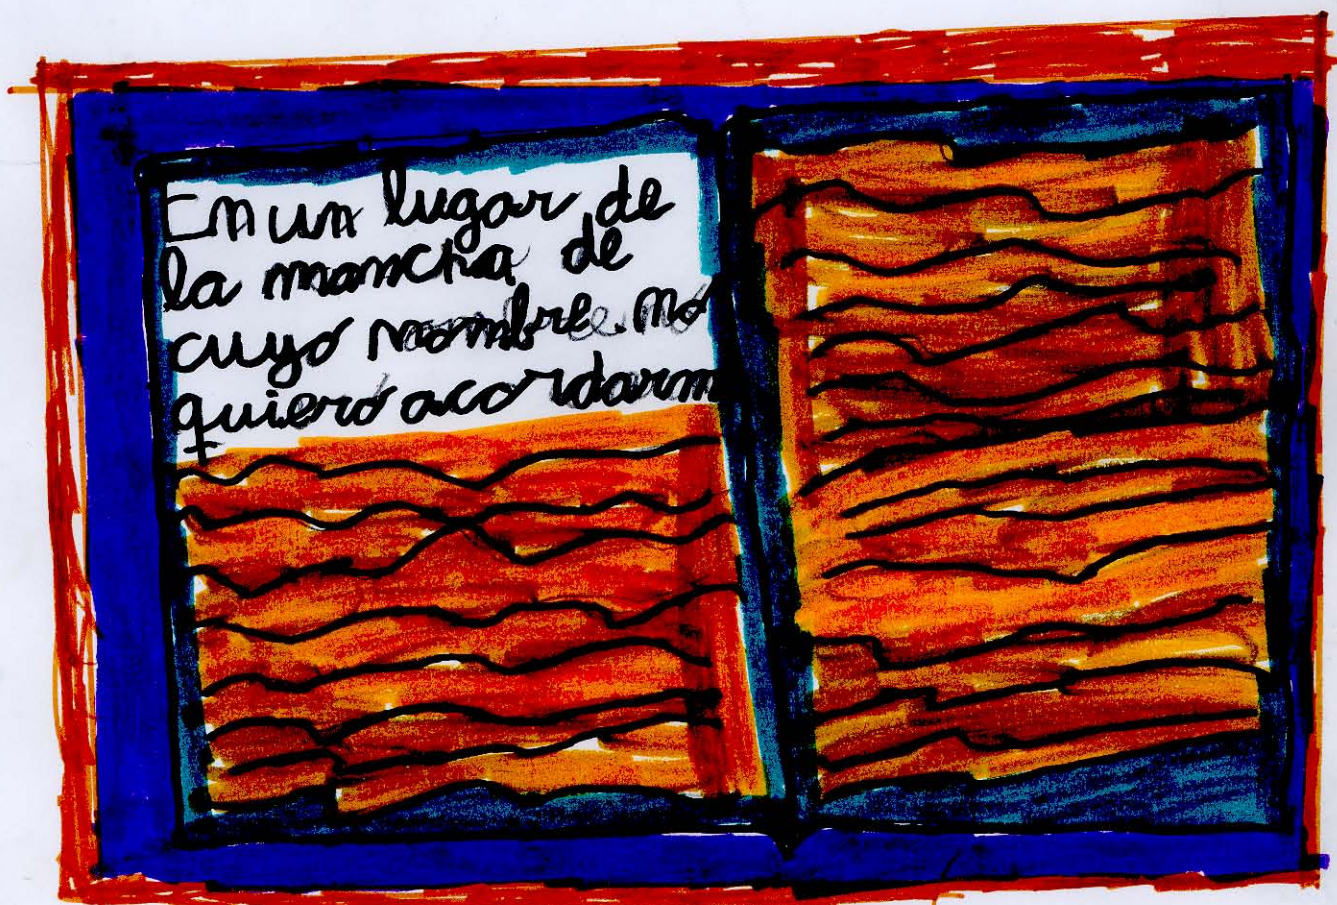 En un lugar de
la mancha de
cuyo nombre no
quiero acordarm